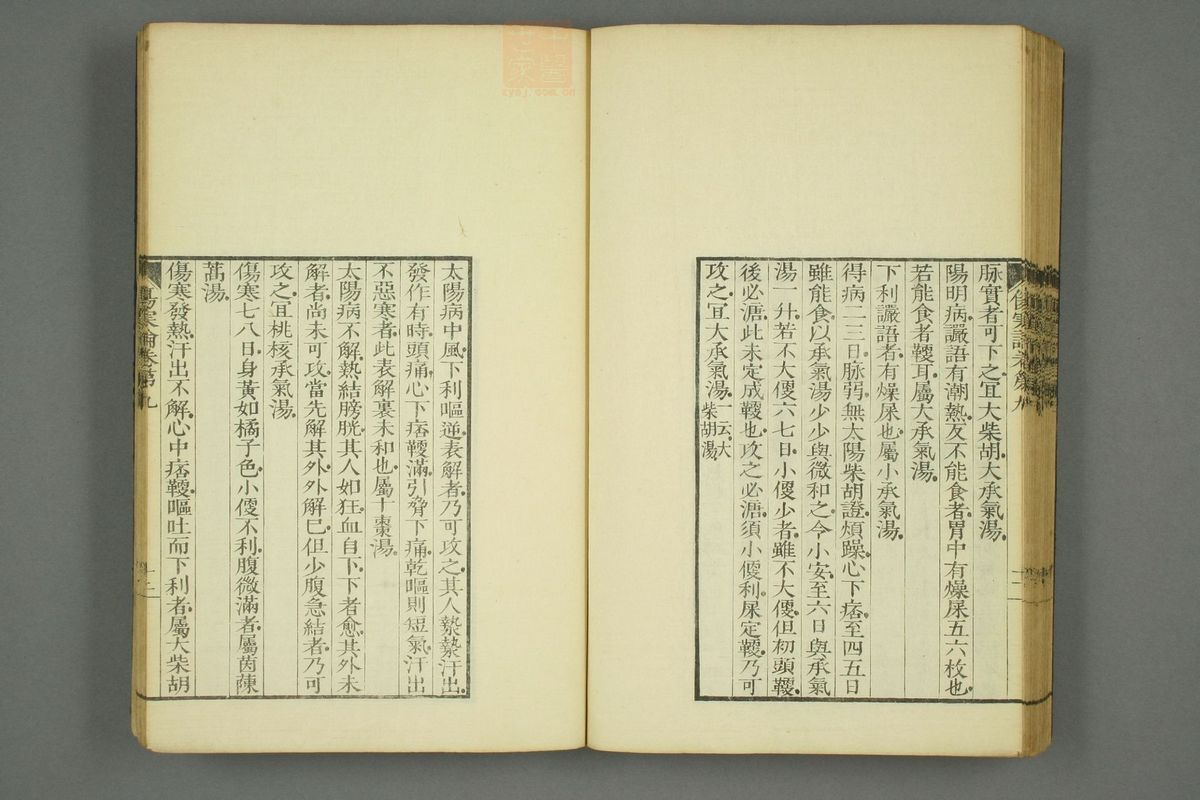 脉實者可下之宜大柴胡大承氣湯
陽明病讝語有潮熱反不能食者胃中有燥屎五六枚也
若能食者鞕耳屬大承氣湯
下利讝語者有燥屎也屬小承氣湯
得病二三日脉弱無太陽柴胡證煩躁心下痞至四五日
雖能食以承氣湯少少與微和之令小安至六日與承氣
湯一升若不大便六七日小便少者雖不大便但初頭鞕
後必溏此未定成鞕也攻之必溏須小便利屎定鞕乃可
攻之宜大承氣湯一云大柴胡湯
太陽病中風下利嘔逆表解者乃可攻之其人漐漐汗出
發作有時頭痛心下痞鞕滿引脅下痛乾嘔則短氣汗出
不惡寒者此表解裏未和也屬十棗湯
太陽病不解熱結膀胱其人如狂血自下下者愈其外未
解者尚未可攻當先解其外外解已但少腹急結者乃可
攻之宜桃核承氣湯
傷寒七八日身黃如橘子色小便不利腹微滿者屬茵蔯
蒿湯
傷寒發熱汗出不解心中痞鞕嘔吐而下利者屬大柴胡
傷寒論卷第九